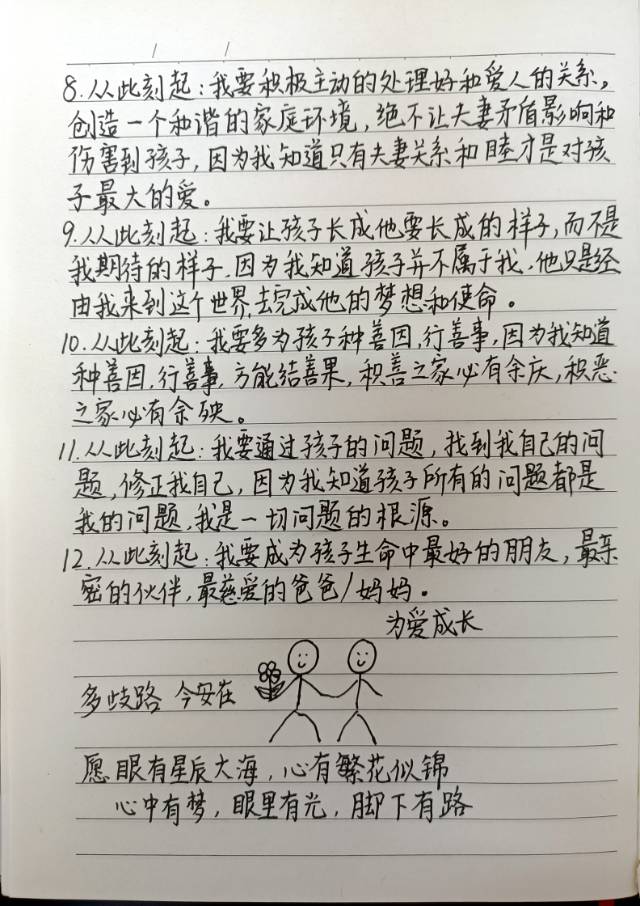 8.从此刻起:我要积极主动的处理好和爱人的关系,
创造一个和谐的家庭环境,绝不让夫妻矛盾影响和
伤害到孩子,因为我知道只有夫妻关系和睦才是对孩
子最大的爱。
9.从此刻起:我要让孩子长成他要长成的样子,而不是
我期待的样子.因为我知道孩子并不属于我.他只是经
由我来到这个世界,去完成他的梦想和使命。
10.从此刻起:我要多为孩子种善因,行善事,因为我知道
种善因,行善事,方能结善果,积善之家必有余庆,积恶
之家必有余殃。
11.从此刻起:我要通过孩子的问题,找到我自己的问
题,修正我自己,因为我知道孩子所有的问题都是
我的问题,我是一切问题的根源。
12.从此刻起:我要成为孩子生命中最好的朋友,最亲
密的伙伴,最慈爱的爸爸/妈妈。
为爱成长
多歧路 今安在
愿眼有星辰大海,心有繁花似锦
心中有梦,眼里有光,脚下有路